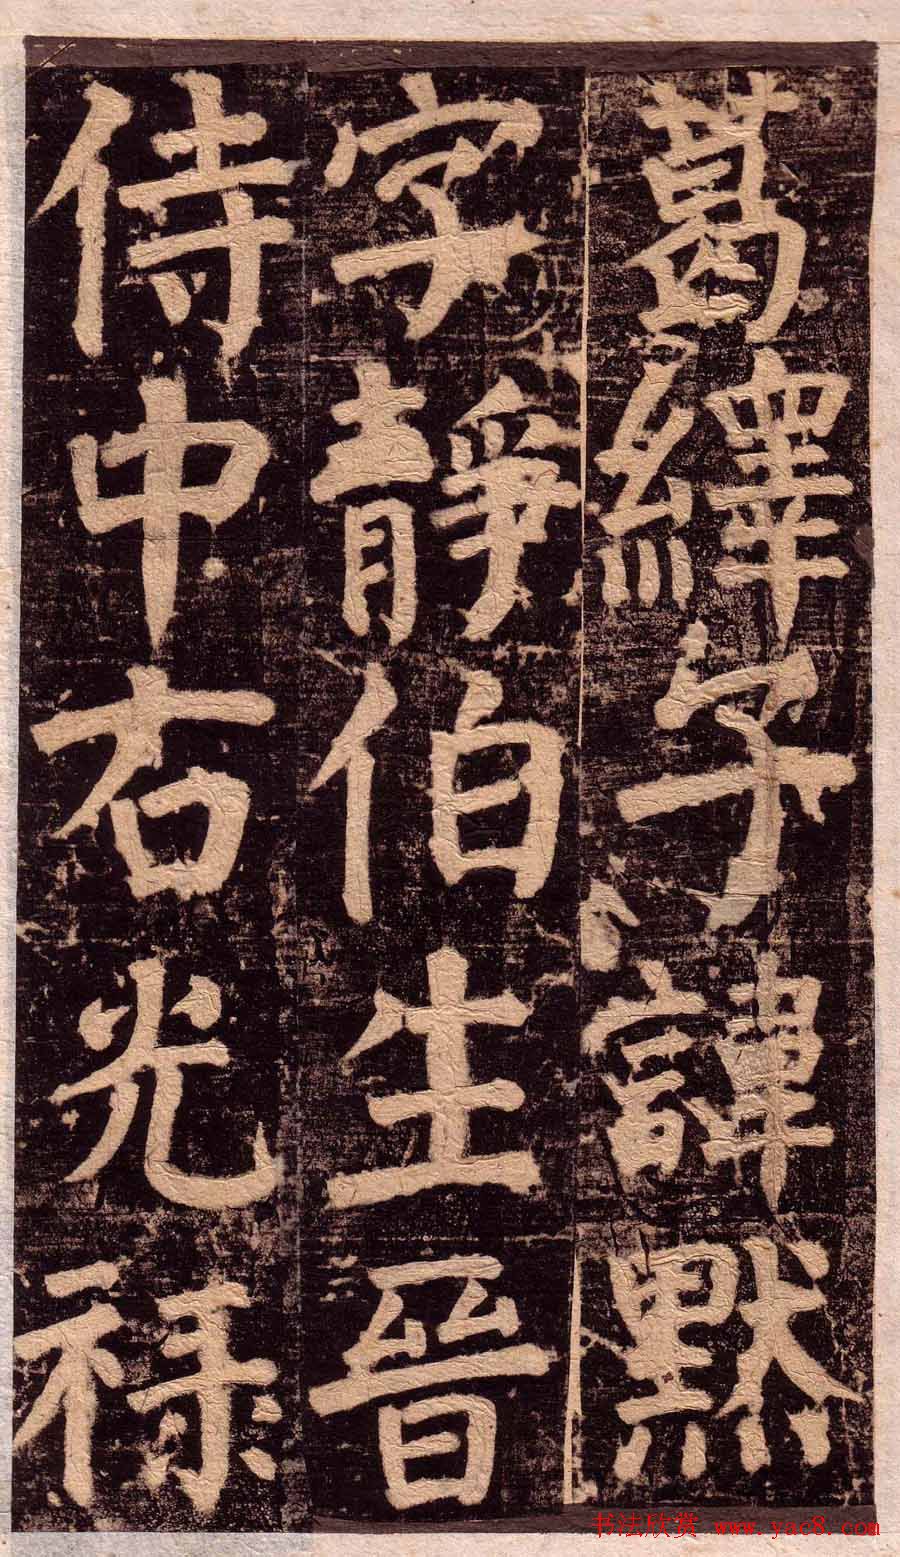 葛繹子諱默
字靜伯生晉
侍中右光祿
书法欣赏 www.yac8.com